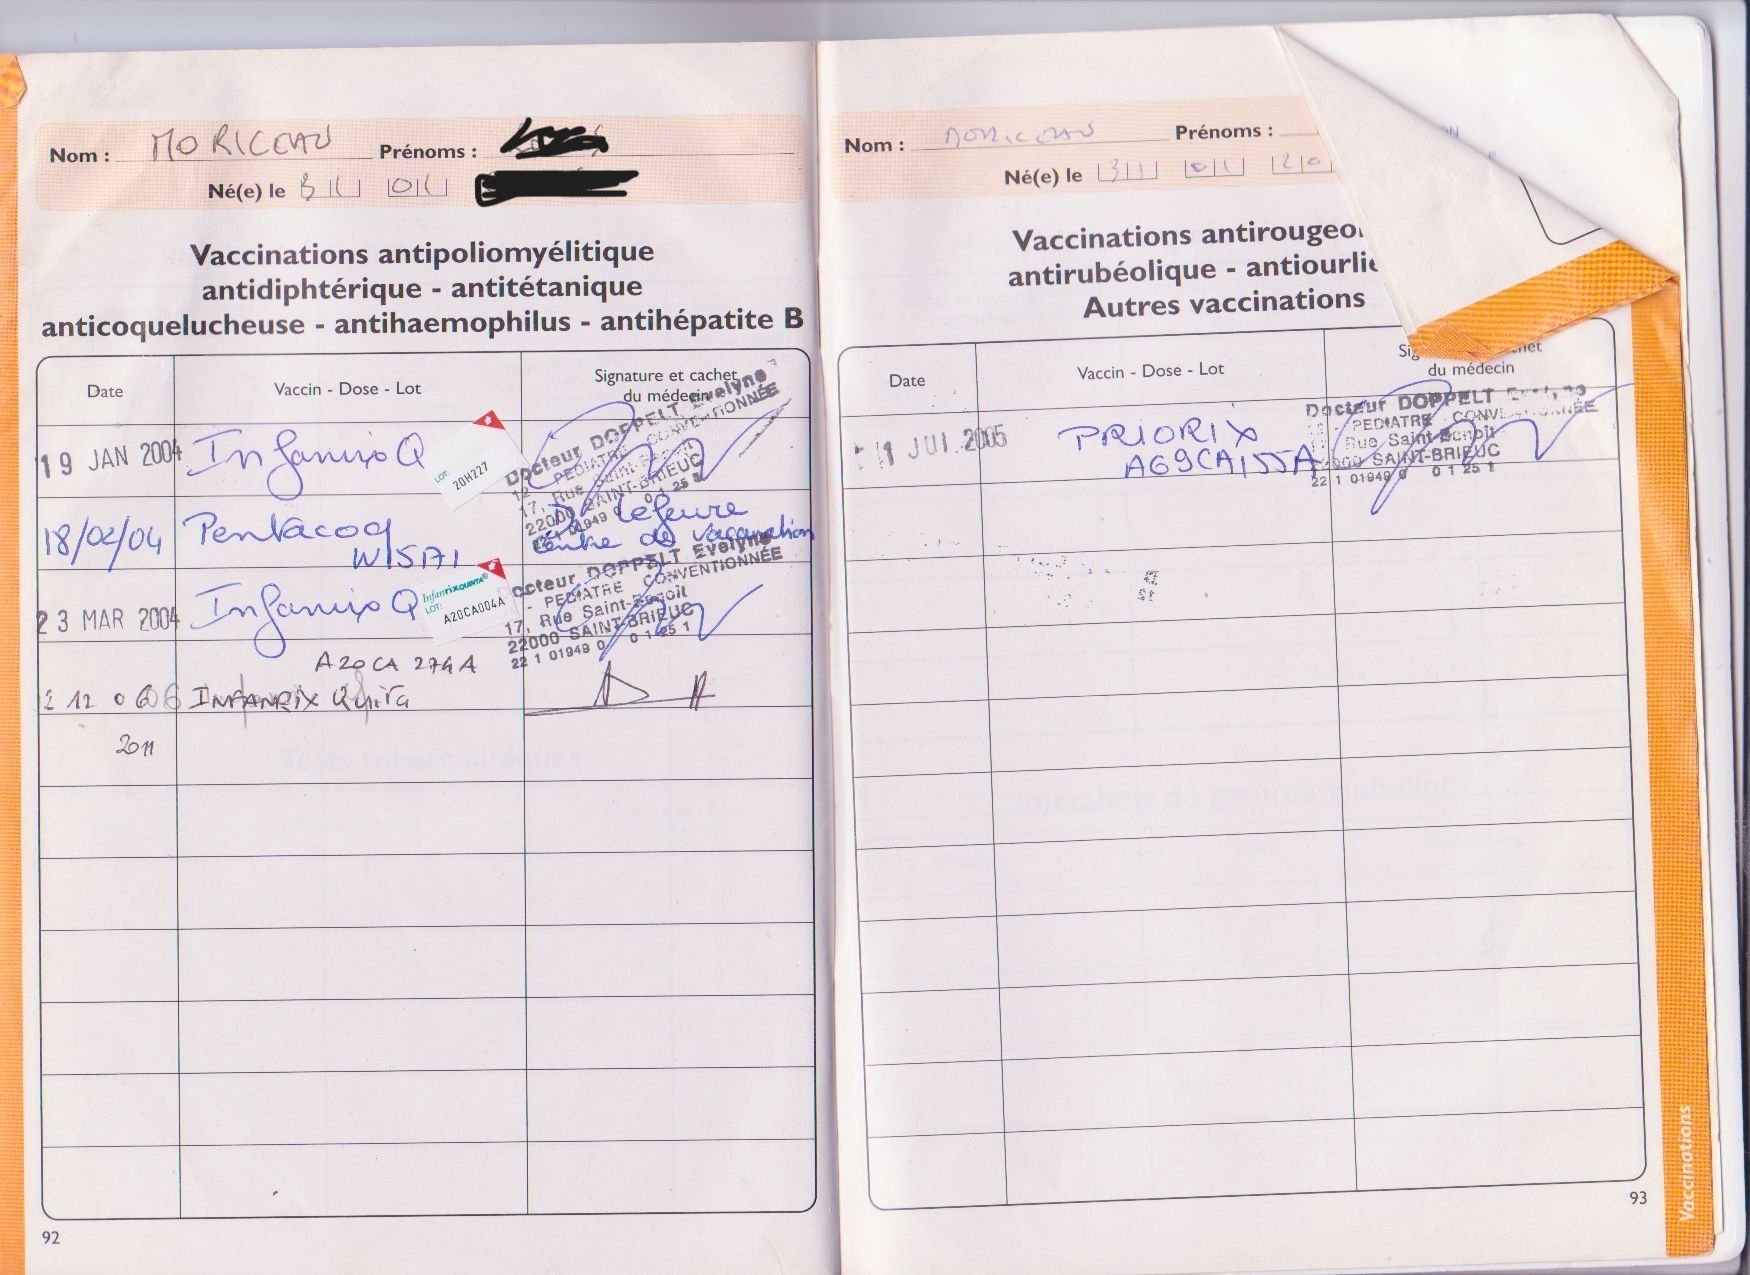 Nom : MORICEAU Prénoms :
Né(e) le
Vaccinations antipoliomyélitique
antidiphtérique - antitétanique
anticoquelucheuse - antihaemophilus - antihépatite B
Date
Vaccin - Dose - Lot
Signature et cachet
du médecin
19 JAN 2004
Infanrix Q
LOT:
20H227
Docteur DOPPELT Evelyne
PEDIATRE CONVENTIONNÉE
17, Rue Saint-Benoit
22000 SAINT-BRIEUC
22 1 01949 0 0 1 25 1
18/02/04
Pentacoq
W15A1
Dr Lefeuvre
Centre de vaccination
23 MAR 2004
Infanrix Q
InfanrixQUINTA®
LOT:
A20CA004A
Docteur DOPPELT Evelyne
- PEDIATRE CONVENTIONNÉE
17, Rue Saint-Benoit
22000 SAINT-BRIEUC
22 1 01949 0 0 1 25 1
A20CA 274A
12
INFANRIX Quinta
2011
92
Nom : MORICEAU Prénoms :
Né(e) le
Vaccinations
antirubéolique -
Autres vaccinations
Date
Vaccin - Dose - Lot
du médecin
JUI. 2005
PRIORIX
A69CA155A
Docteur DOPPELT
- PEDIATRE
Rue Saint-Benoit
SAINT-BRIEUC
22 1 01949 0 0 1 25 1
93
Vaccinations